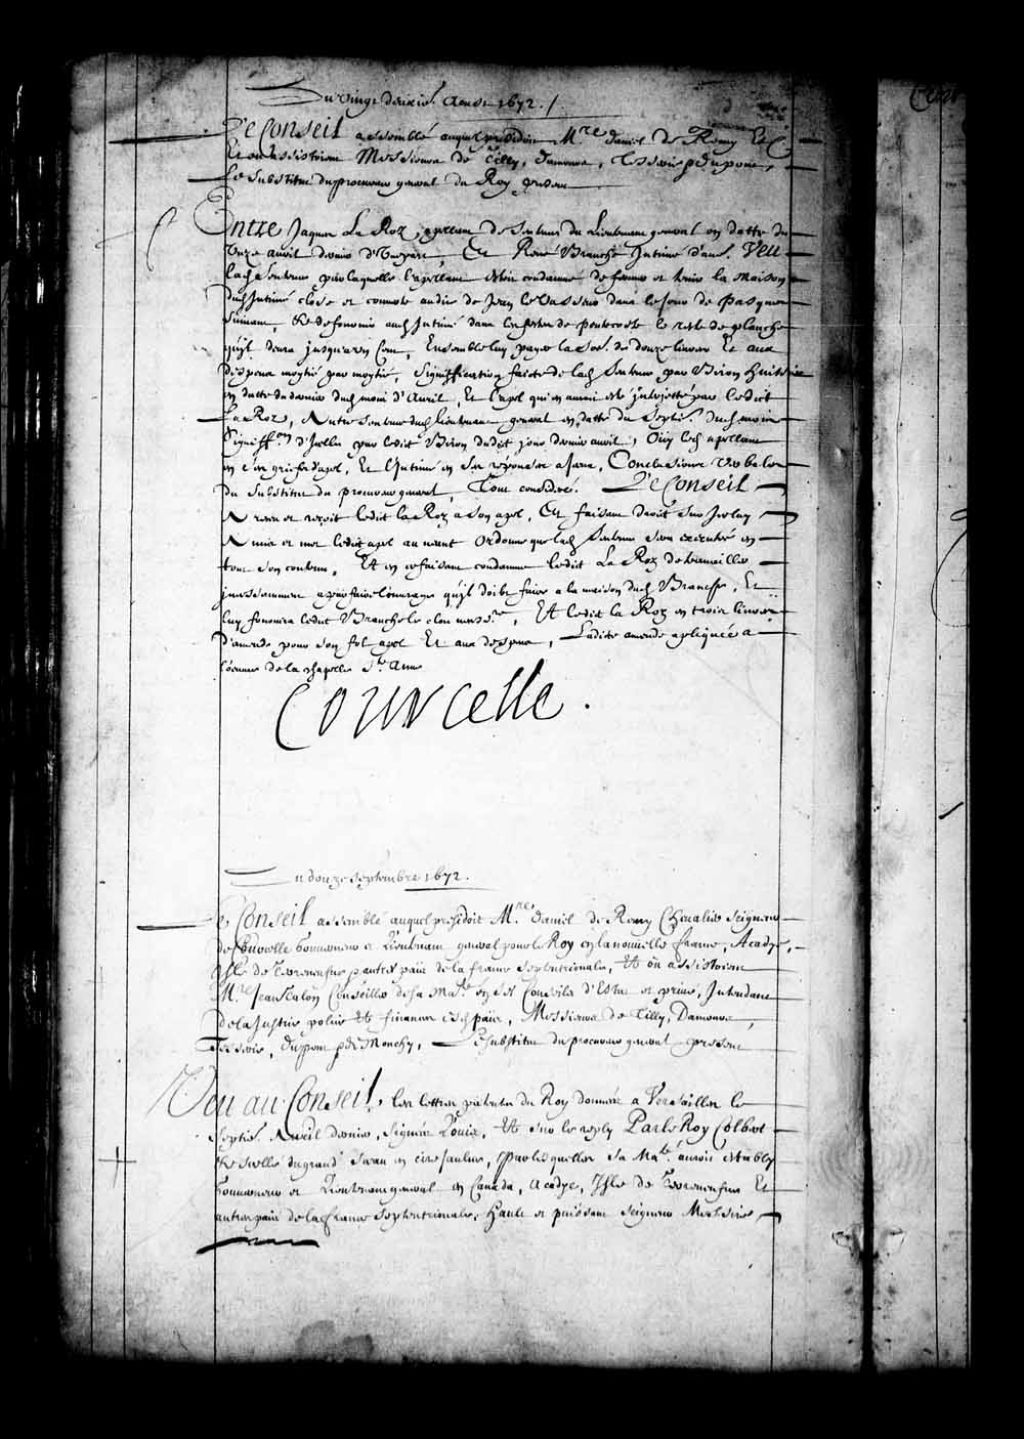 Du vingt deuxie. Aoust 1672. /
Le Conseil assemblé auquel presidoit Mre. daniel de Remy Etc
Et ou assistoient Messieurs de Tilly, Damours, Tesserie, & dupont,
Le substitut du procureur general du Roy present
Entre Jaques La Roz, apellant de sentence du Lieutenant general en datte du
unze avril dernier d'une part, Et René Branche Intimé d'aut. Veu
lad. sentence par laquelle l'apellant estoit condamné de fermer et tenir la maison
dud. Intimé close et couverte au dire de Jean levasseur dans le jour de pasques
suivant, & de fournir aud. Intimé dans les festes de pentecoste le reste de planche
qu'il devra jusqu'a un Cent, Ensemble luy payer la so. de douze livres Et aux
despens moytié par moytié, Signiffication faicte de lad. sentence par Biron huissier
en datte du dernier dud. mois d'Avril, Et l'apel qui en auroit esté interjetté par ledict
La Roz, Autre sentence dud. Lieutenant general en datte du Septie. dud. mois
Signiff.on d'Icelle par ledit Biron dudit jour dernier avril, Ouy led. apellant
en ses griefs d'apel, Et l'Intimé en ses reponses a iceux, Conclusions verballes
du substitut du procureur general, Tout consideré. Le Conseil
A receu et reçoit ledit la Roz a son apel, Et faisant droit sur Iceluy
A mis et met ledit apel au neant Ordonne que lad. sentence sera executée en
tout son contenu, Et en ce faisant condamne ledit La Roz de travailler
incessamment a parfaire l'ouvrage qu'il doibt faire a la maison dud. Branche, Et
luy fournira ledit Branche le clou necess.re, Et ledit la Roz en trois livres
d'amende pour son fol apel Et aux despens, Ladite amende apliquée a
l'œuvre de la chapelle Ste. Anne
Courcelle.
Du douze septembre 1672.
Le Conseil assemblé auquel presidoit Mre. daniel de Remy Chevalier seigneur
de Courcelle Gouverneur et Lieutenant general pour le Roy en la nouvelle france, Acadye,
Isle de Terreneufve & autres païs de la france septentrionale, Et ou assistoient
Mre Jean Talon Conseiller de sa Mate. en ses Conseils d'Estat et privé, Intendant
de la Justice police Et finances esd. païs, Messieurs de Tilly, Damours,
Tesserie, dupont & de Mouchy, Le substitut du procureur general present
Veu au Conseil, les lettres patentes du Roy données a Versailles le
septie. Avril dernier, signées Louis, Et sur le reply Par le Roy Colbert
& scellé du grand sceau en cire jaulne, par lesquelles sa Mate. auroit estably
Gouverneur et Lieutenant general en Canada, Acadye, Isle de Terreneufve Et
autres païs de la france septentrionale, hault et puissant seigneur Messire